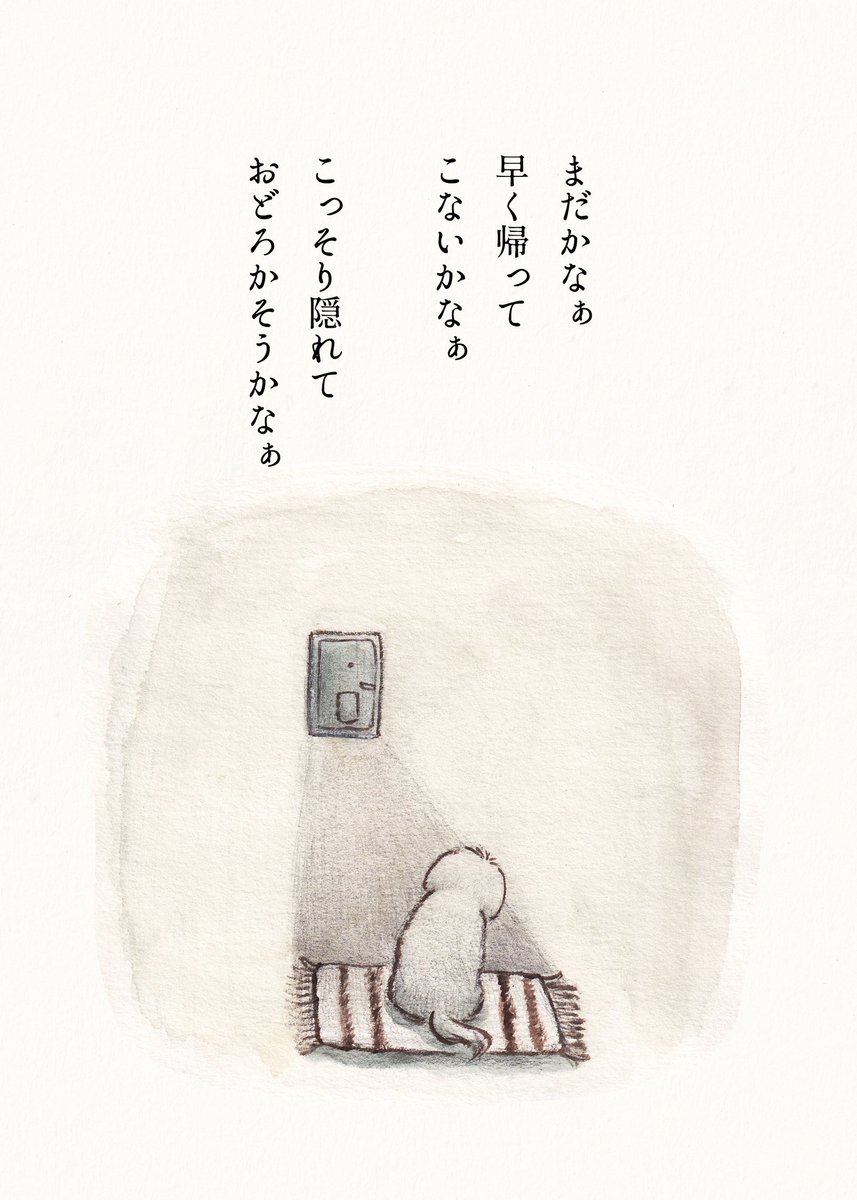 まだかなぁ
早く帰って
こないかなぁ
こっそり隠れて
おどろかそうかなぁ